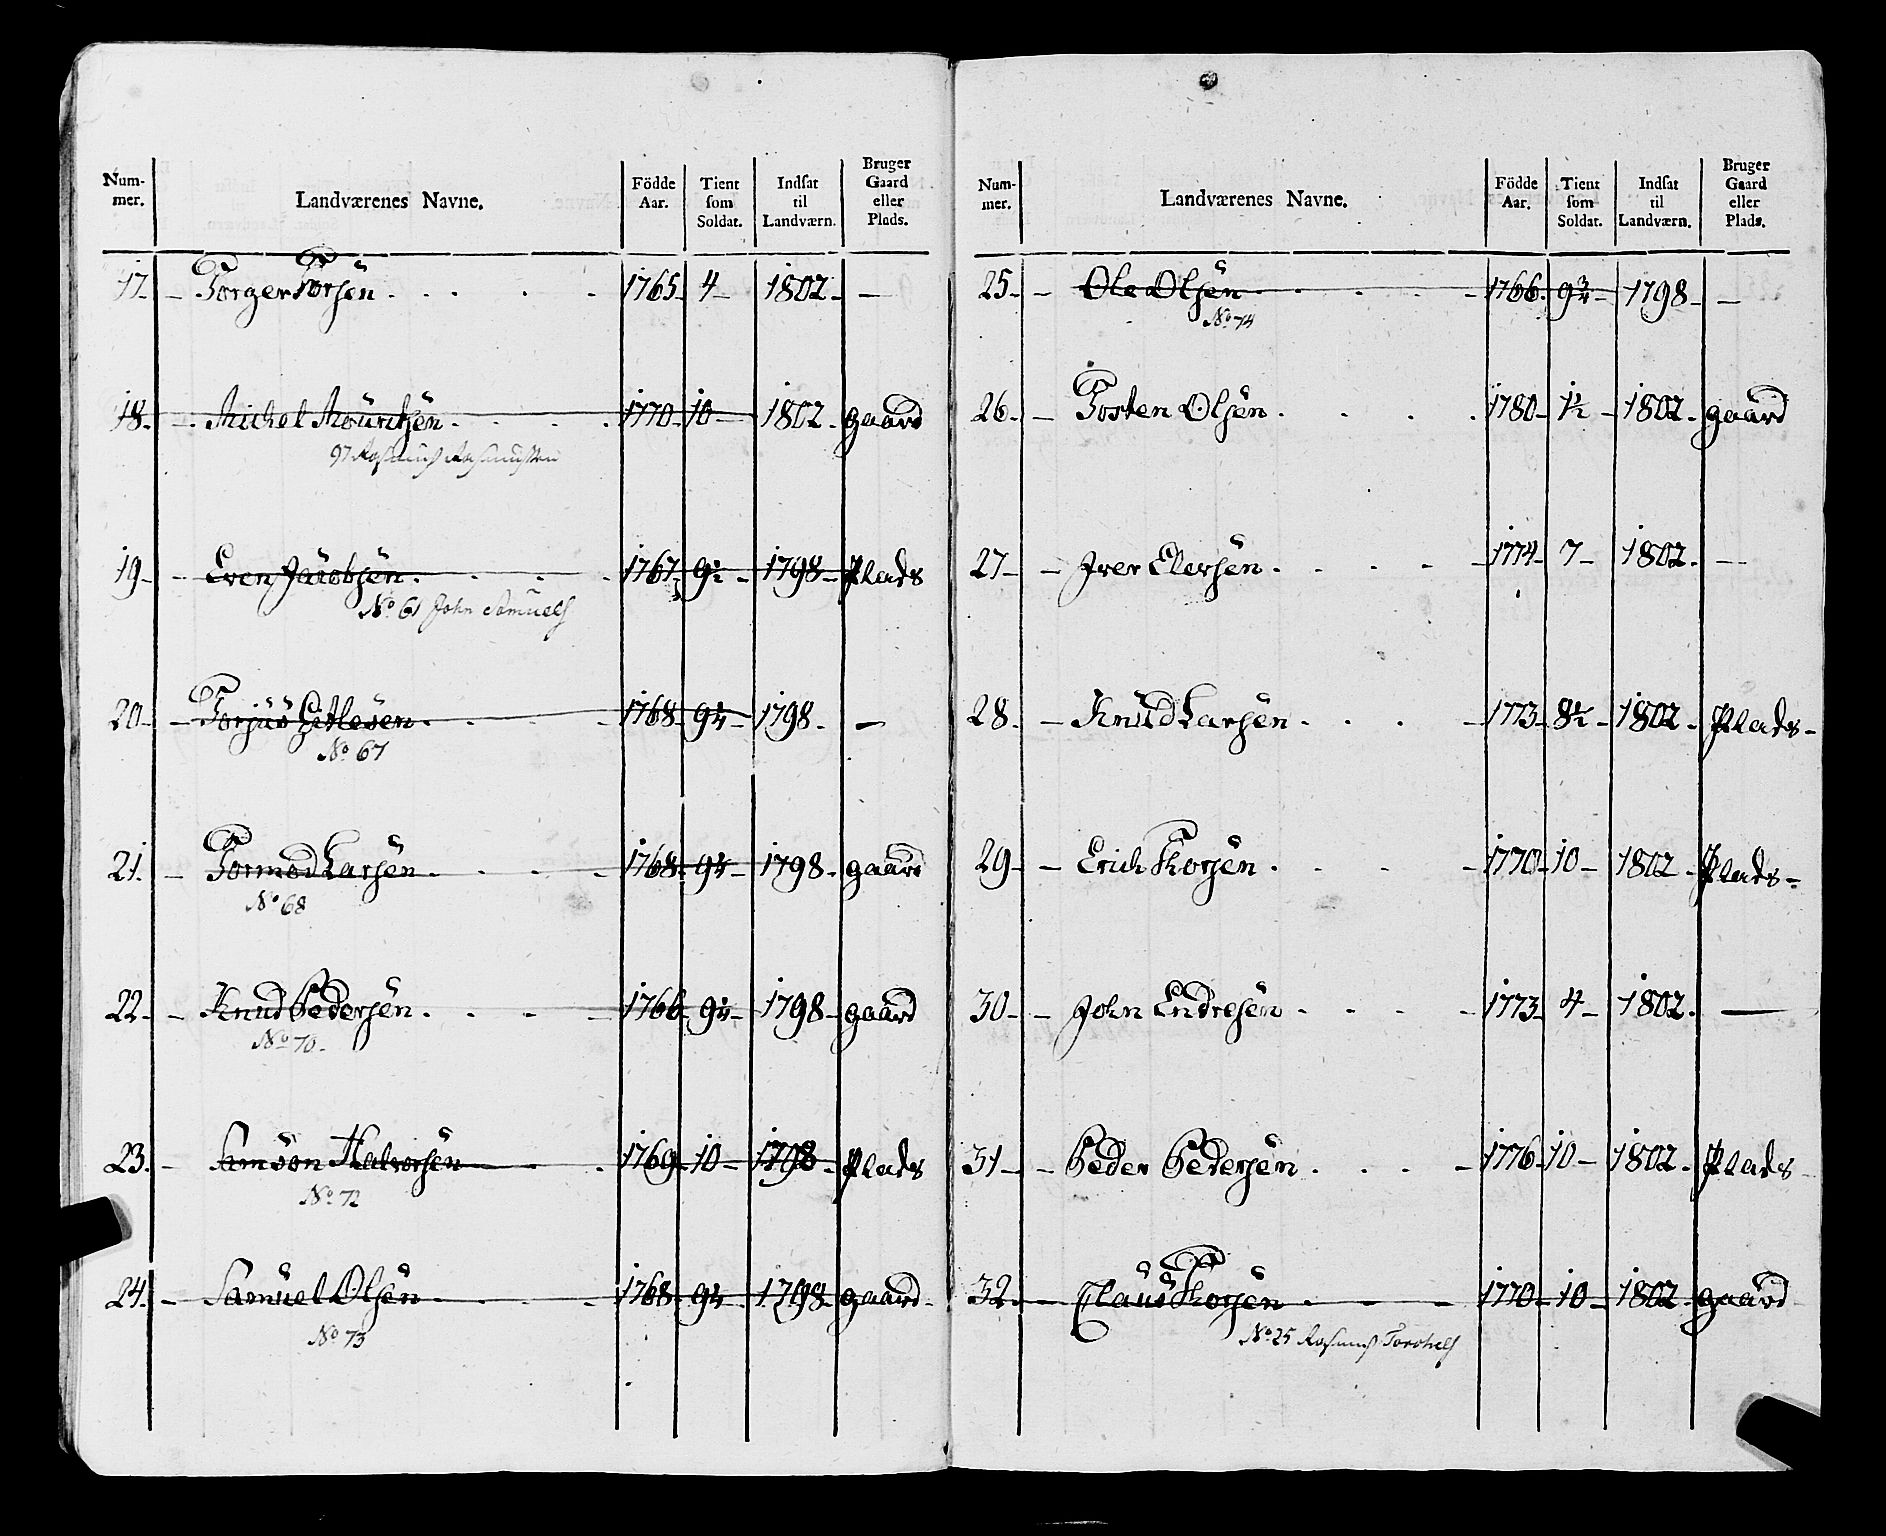 Num-mer. Landværenes Navne. Födde Aar. Tient som Soldat. Indsat til Landværn. Bruger Gaard eller Plads.
17. - Torger Torsen . . . . 1765. 4 - 1802. -
18. - Michel Mouritzen . . . . 1770. 10 - 1802. gaard
97 Rasmus Rasmussen
19. - Even Jacobsen . . . . 1767. 9½ - 1798 - Plads
No 61 John Samuels
20. - Torjus Getlesen . . . . 1768. 9¼ - 1798. -
No 67
21. - Tormod Larsen . . . . 1768. 9¼ - 1798. gaard
No 68
22. - Knud Pedersen . . . . 1766. 9¼ - 1798 - gaard
No 70.
23. - Samson Halvorsen - . 1769. 10 - 1798. Plads
No 72
24. - Samuel Olsen . . . . 1768. 9¼ - 1798 - gaard.
No 73
Num-mer. Landværenes Navne. Födde Aar. Tient som Soldat. Indsat til Landværn. Bruger Gaard eller Plads.
25. - Ole Olsen . . . . 1766. 9¾ - 1798 - -
No 74
26. - Torsten Olsen . . . . 1780 - 1½ - 1802. gaard
27 - - Iver Elersen . . . . 1774. 7 - 1802. -
28. - Knud Larsen . . . . 1773 - 8½ - 1802. Plads -
29 - - Erich Thorsen . . . . 1770. 10 - 1802 - Plads -
30 - - John Endresen . . . . 1773. 4 - 1802. -
31 - - Peder Pedersen . . . . 1776. 10 - 1802. Plads -
32. - Claus Thorsen . . - 1770 - 10 - 1802 - gaard
No 25 Rasmus Torchels